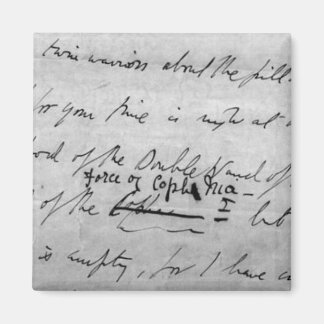 twin warriors about the pill
for your time is nigh at
ord of the Double Wand of
force of Coph Nia -
of the Coph I let
is empty, for I have